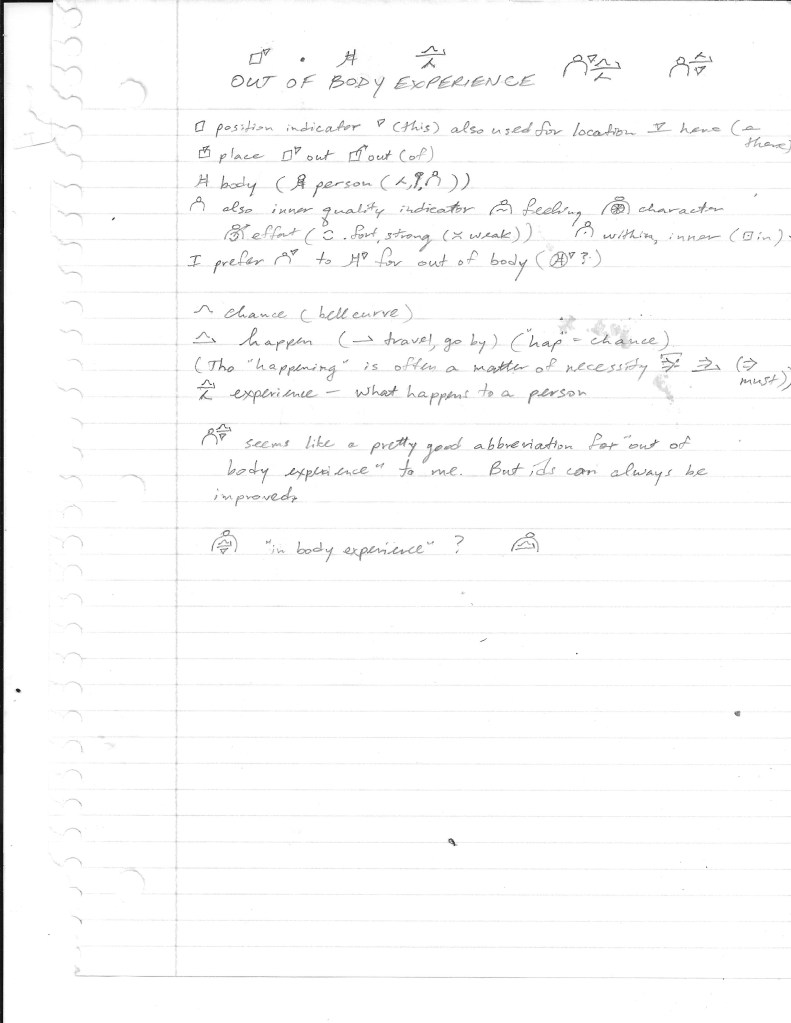 OUT OF BODY EXPERIENCE
position indicator (this) also used for location here (
there)
place out out (of)
body ( person ( ))
also inner quality indicator feeling character
effort ( fort, strong (x weak)) within, inner ( in)
I prefer to for out of body ( ?)
chance (bell curve)
happen (→ travel, go by) ("hap" = chance)
(Tho "happening" is often a matter of necessity (⇒
must)
experience — what happens to a person
seems like a pretty good abbreviation for "out of
body experience" to me. But ids can always be
improved.
"in body experience" ?